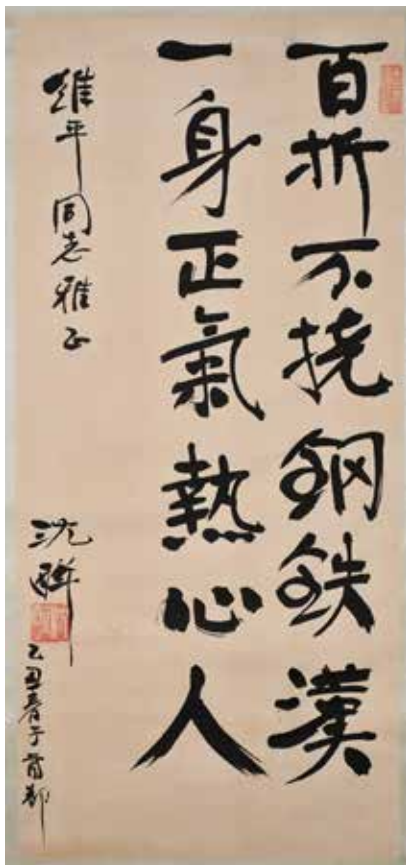 百折不挠鋼鉄漢
一身正氣熱心人
維平同志雅正
沈鵬
乙丑春于首都